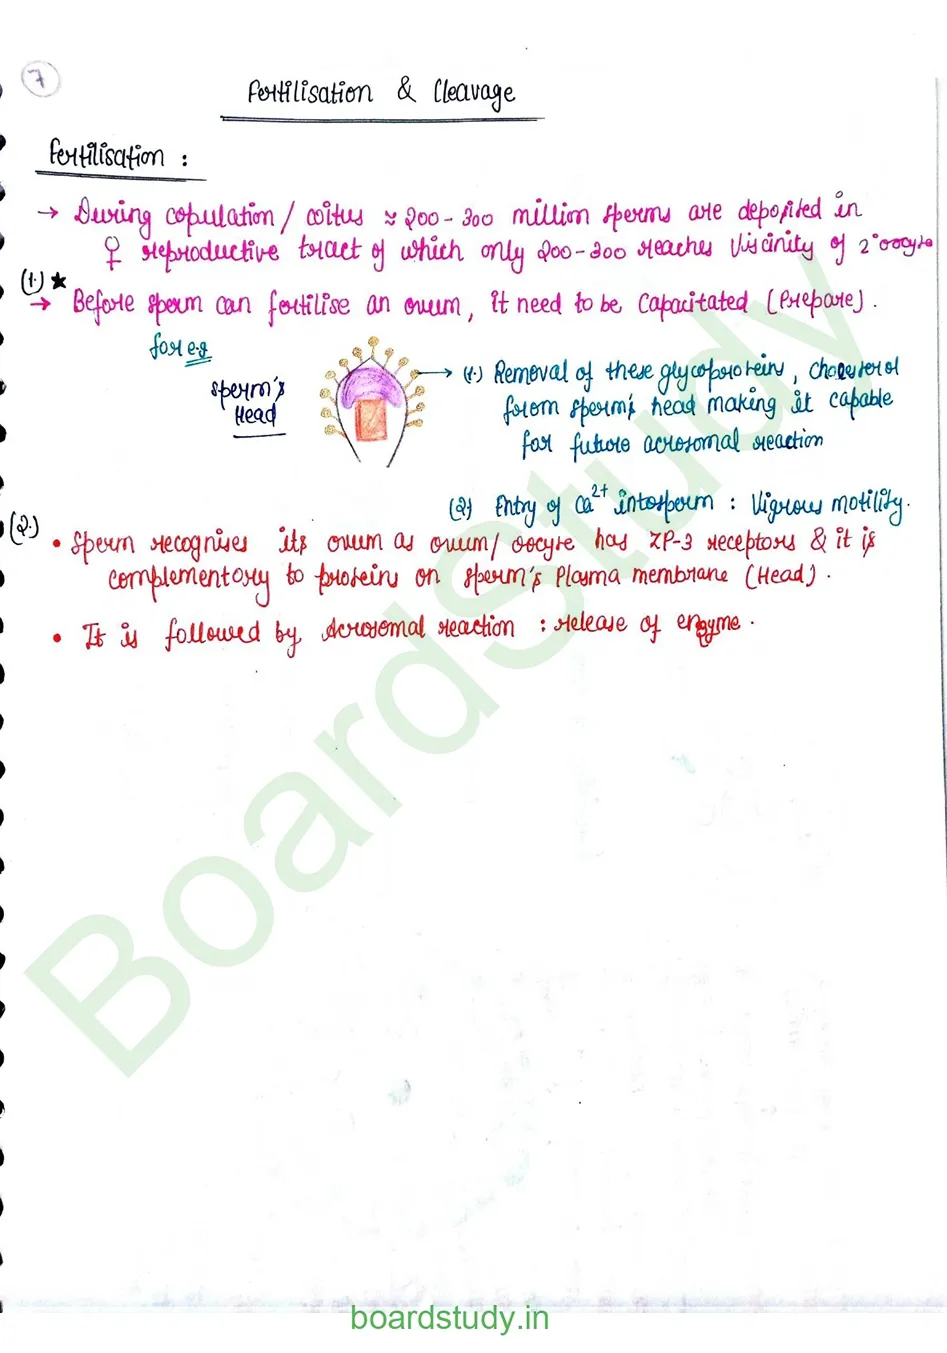 7
Fertilisation & Cleavage
Fertilisation :
→ During copulation / coitus ≈ 200-300 million sperms are deposited in
♀ reproductive tract of which only 200-300 reaches viscinity of 2° oocyte
(1.) ★
→ Before sperm can fertilise an ovum, it need to be capacitated (Prepare).
for e.g
sperm's
Head
(1.) Removal of these glycoproteins, cholesterol
from sperm's head making it capable
for future acrosomal reaction
(2) Entry of Ca2+ into sperm : Vigrous motility.
(2.)
• Sperm recognises its ovum as ovum/ oocyte has ZP-3 receptors & it is
complementory to proteins on sperm's Plasma membrane (Head).
• It is followed by Acrosomal reaction : release of enzyme.
BoardStudy
boardstudy.in